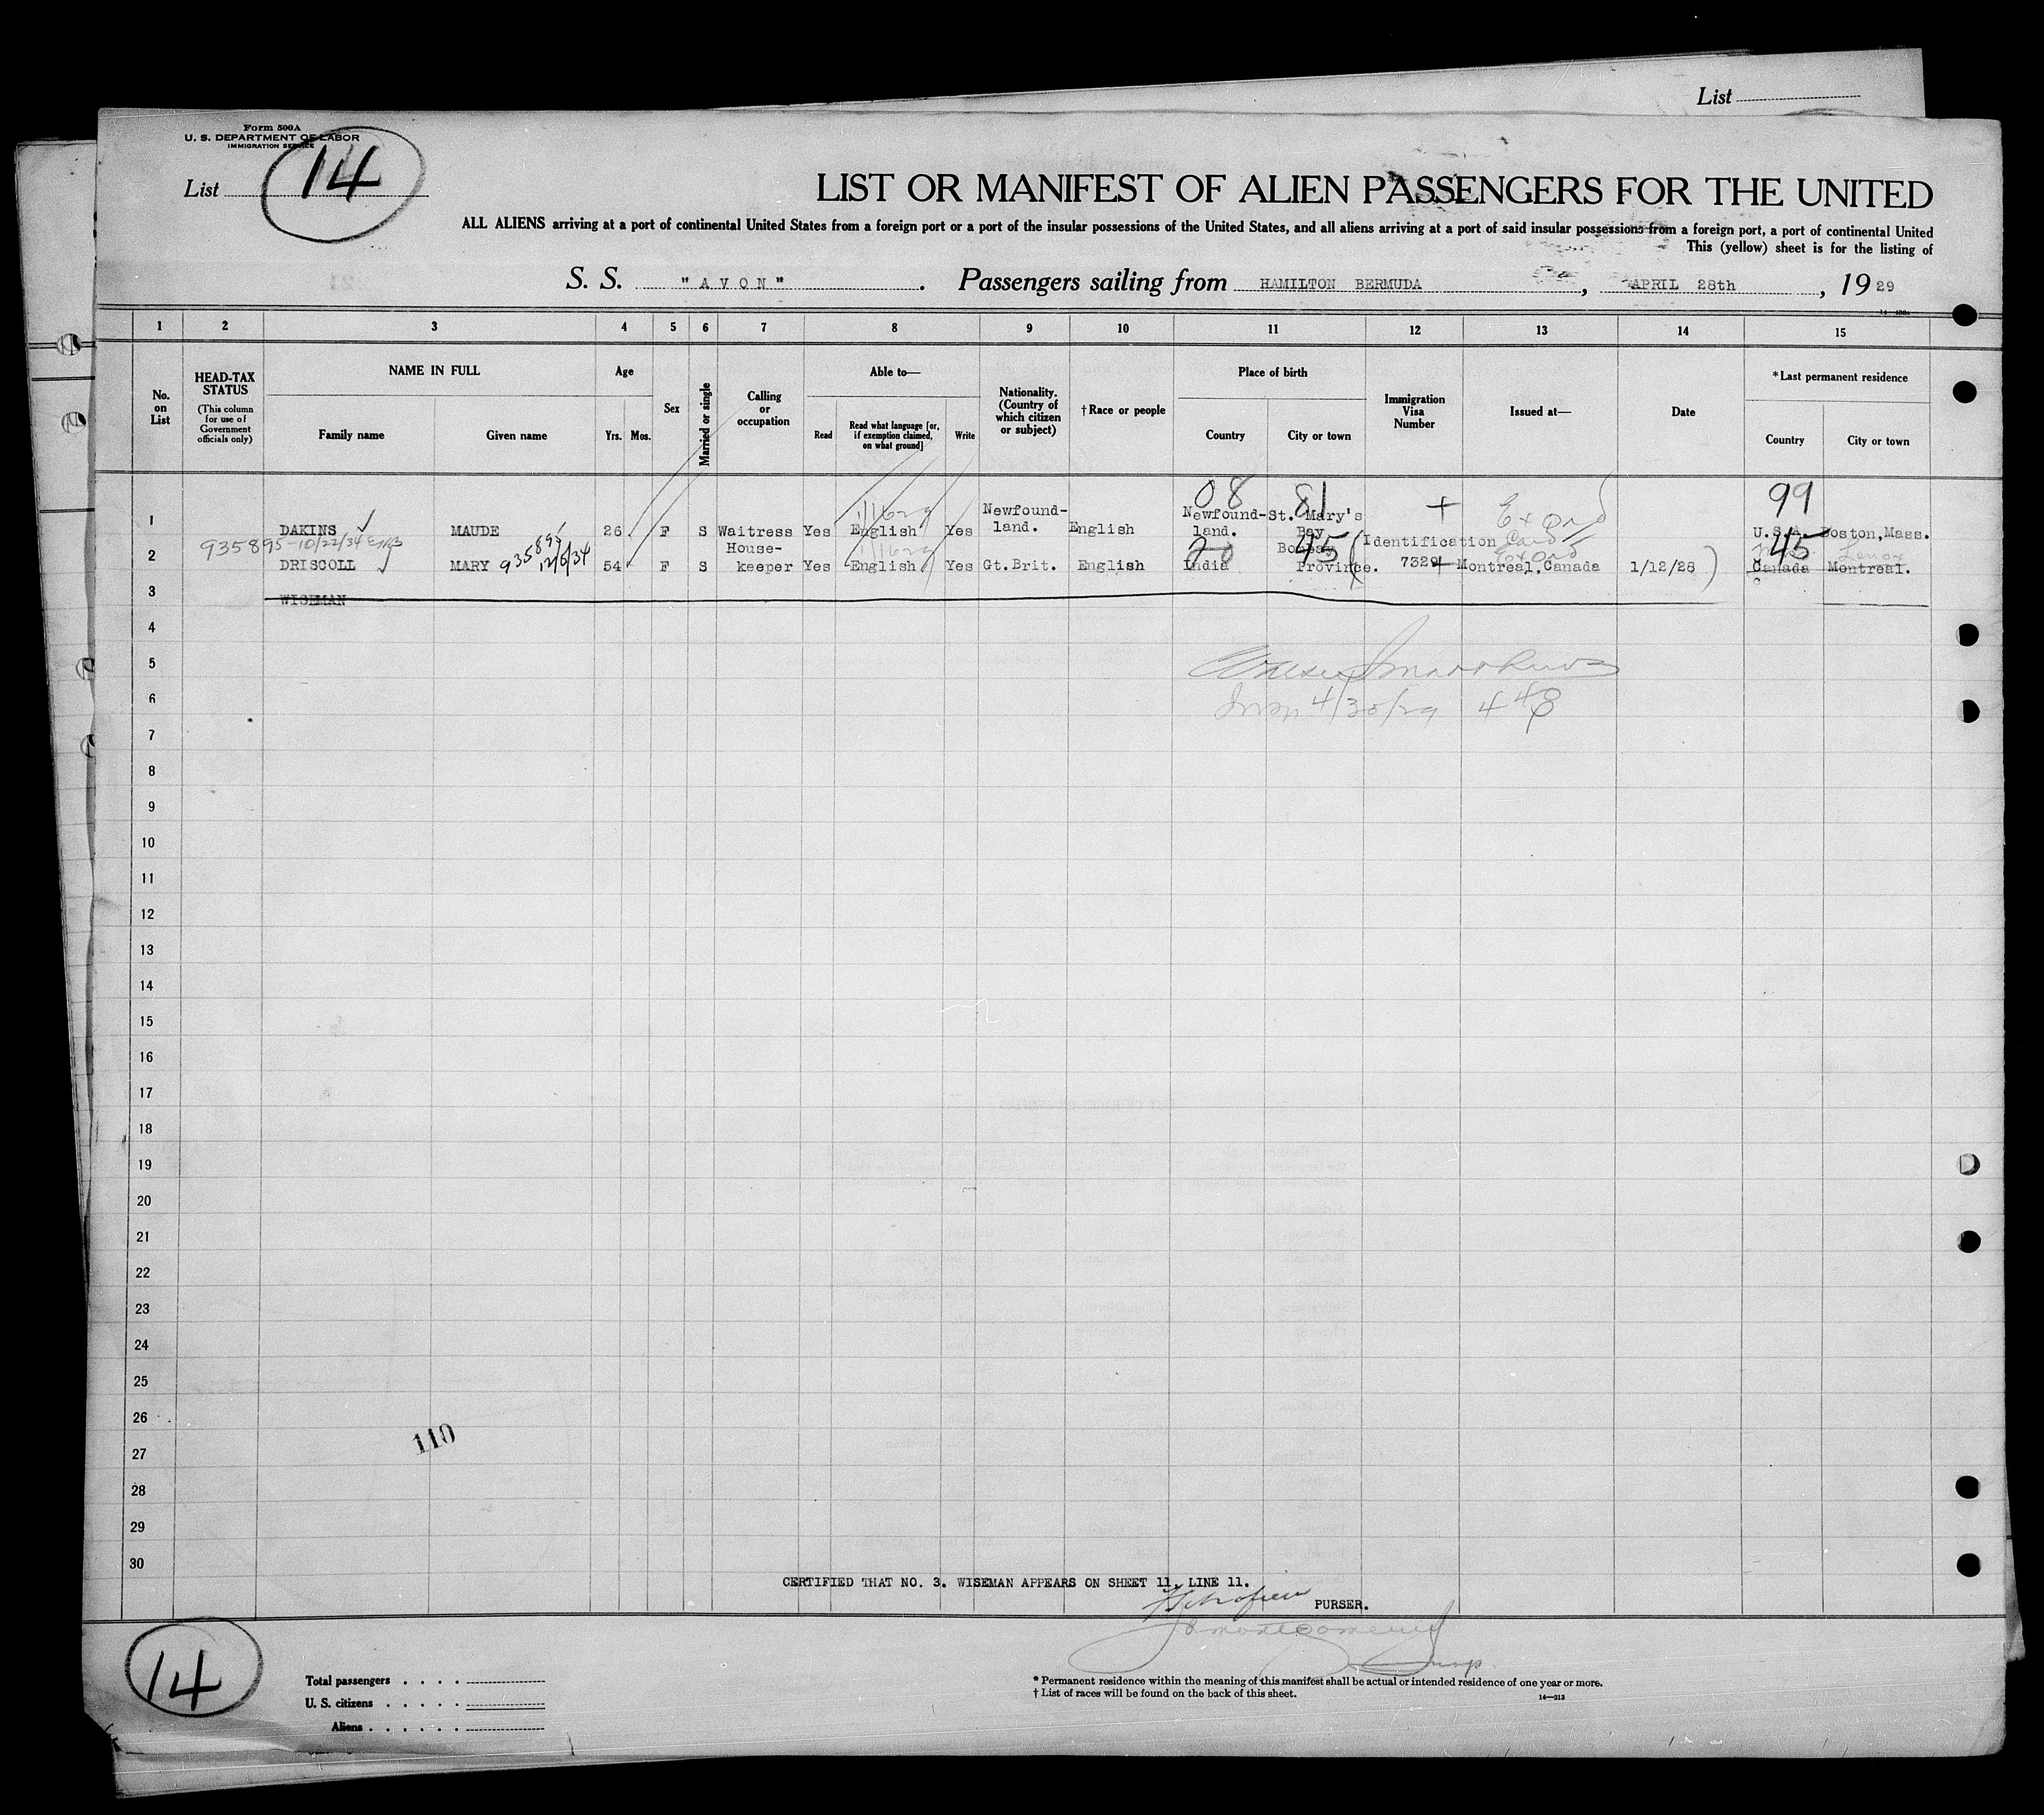 List
Form 500A
U. S. DEPARTMENT OF LABOR
IMMIGRATION SERVICE
List 14
LIST OR MANIFEST OF ALIEN PASSENGERS FOR THE UNITED
ALL ALIENS arriving at a port of continental United States from a foreign port or a port of the insular possessions of the United States, and all aliens arriving at a port of said insular possessions from a foreign port, a port of continental United
This (yellow) sheet is for the listing of
S. S. "AVON". Passengers sailing from HAMILTON BERMUDA, APRIL 28th, 1929
1 2 3 4 5 6 7 8 9 10 11 12 13 14 15
No. on List
HEAD-TAX STATUS
(This column for use of Government officials only)
NAME IN FULL
Family name Given name
Age
Yrs. Mos.
Sex
Married or single
Calling or occupation
Able to—
Read
Read what language [or, if exemption claimed, on what ground]
Write
Nationality. (Country of which citizen or subject)
†Race or people
Place of birth
Country City or town
Immigration Visa Number
Issued at—
Date
*Last permanent residence
Country City or town
08 81 99
1 DAKINS MAUDE 26 F S Waitress Yes English Yes Newfound-land. English Newfound-land. St. Mary's Bay U.S.A. Boston, Mass.
935895-10/22/34 935895 12/6/34
20 45 45
2 DRISCOLL MARY 54 F S House-keeper Yes English Yes Gt.Brit. English India Bombay Province. (Identification Card 7329 Montreal, Canada 1/12/28) Canada Montreal.
Lenox
3 WISEMAN
4
5
6
4/30/29 448
7
8
9
10
11
12
13
14
15
16
17
18
19
20
21
22
23
24
25
26
110
27
28
29
30
CERTIFIED THAT NO. 3. WISEMAN APPEARS ON SHEET 11, LINE 11.
PURSER.
14
Total passengers
U. S. citizens
Aliens
* Permanent residence within the meaning of this manifest shall be actual or intended residence of one year or more.
† List of races will be found on the back of this sheet.
14—213